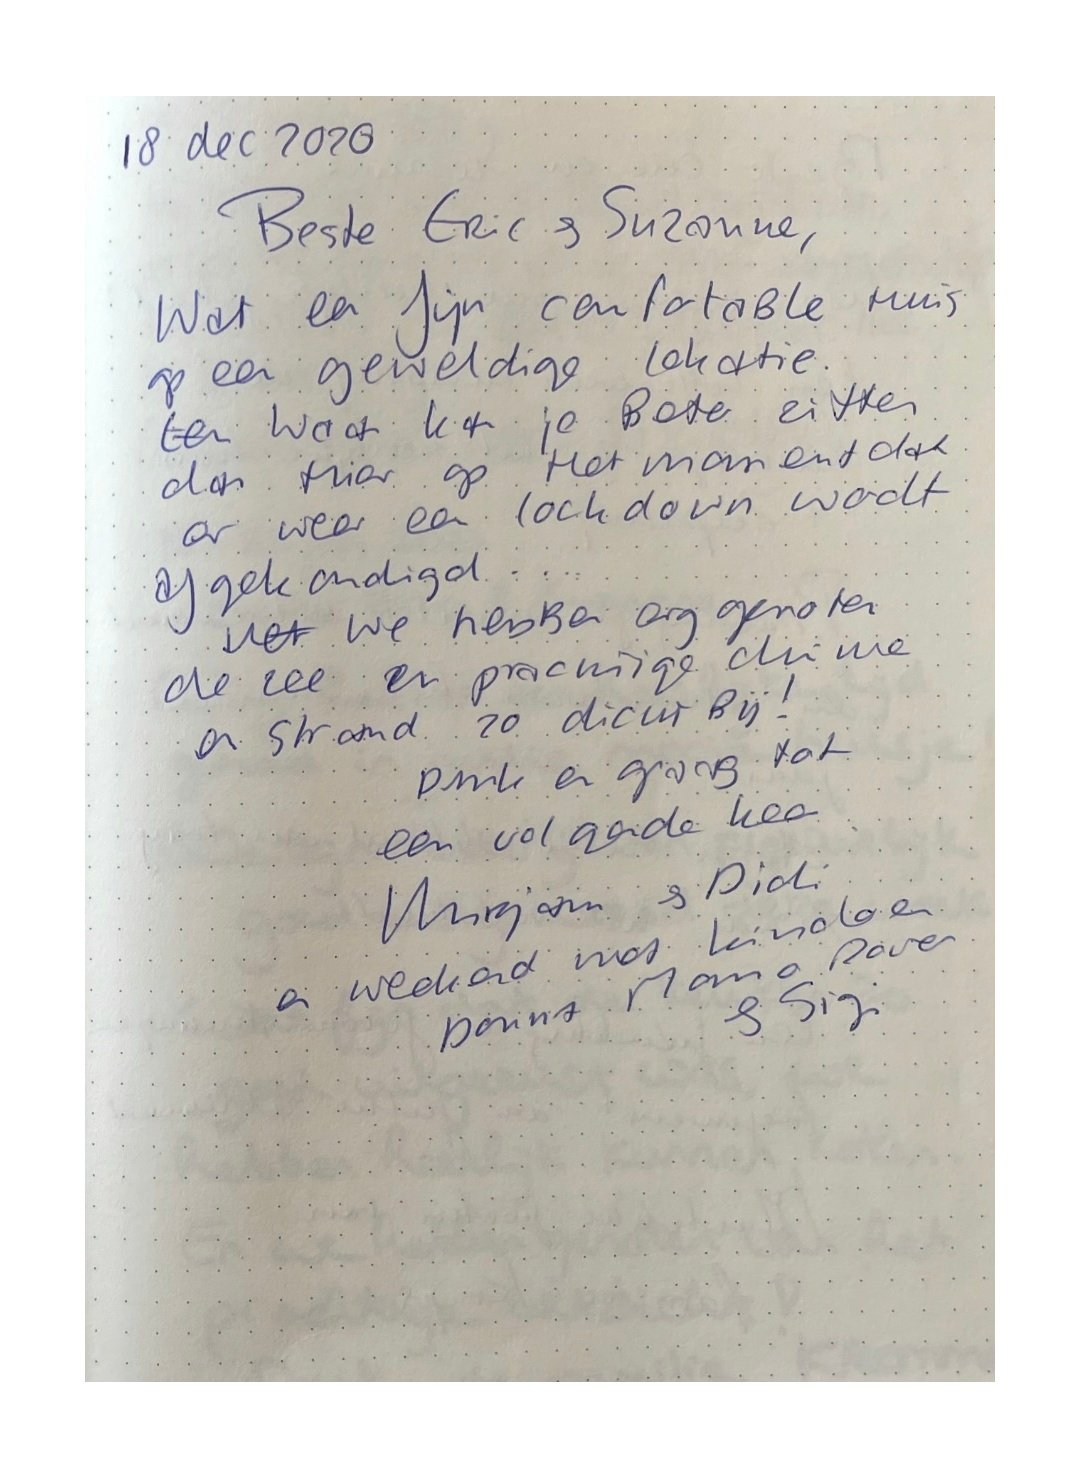 18 dec 2020
Beste Eric & Suzanne,
Wat een fijn comfortable Huis
op een geweldige lokatie.
En waar kan je Beter zitten
dan hier op Het moment dat
er weer een lockdown wordt
afgekondigd ....
Het We hebben erg genoten
de zee en prachtige duinen
en strand zo dicht Bij!
Dank en graag tot
een volgende keer
Mirjam & Didi
en weekend met kinderen
Danny Mama
& Sigi